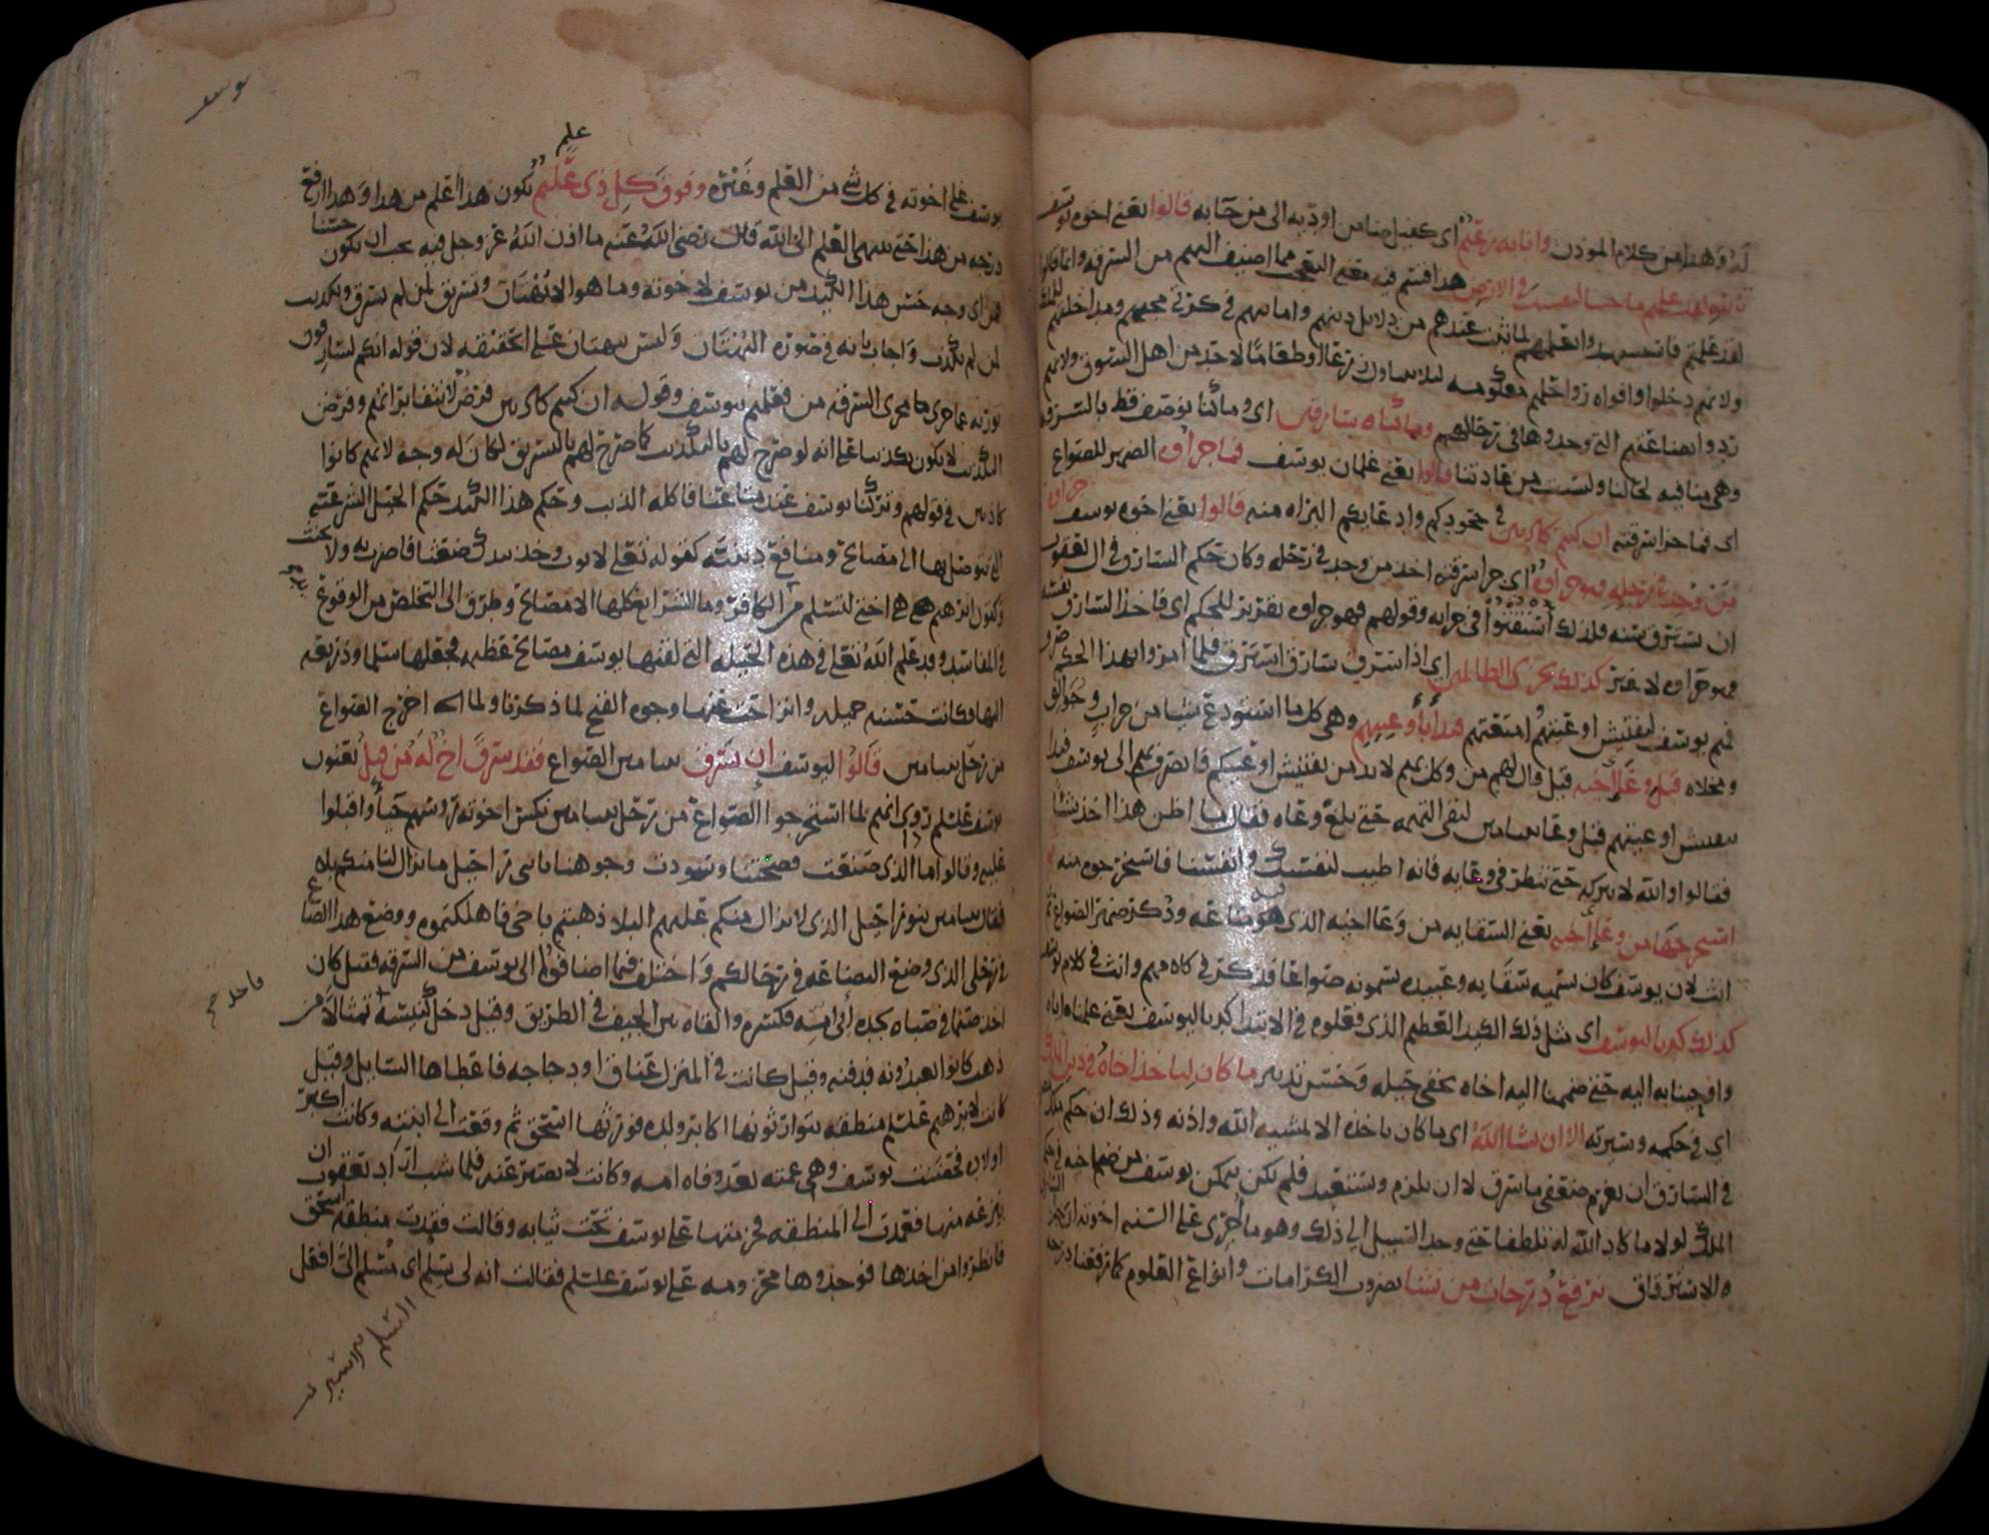 له وهذا من كلام الموذن وانا به زعيم اي كفيل ضامن اوديه الى من جا به قالوا يعني اخوه يوسف
تالله لقد علمتم ما جينا لنفسد في الارض هذا قسم فيه معنى التعجب مما اضيف اليهم من السرقه وانما قالوا
لقد علمتم فاستشهدوا بعلمهم لما ثبت عندهم من دلايل دينهم وامانتهم في كرتي مجيهم ومداخلتهم للملك
ولانهم دخلوا وافواه رواحلهم معكومه ليلا تتناول زرعا او طعاما لاحد من اهل السوق ولانهم
ردوا بضاعتهم التي وجدوها في رحالهم وما كنا سارقين اي وما كنا نوصف قط بالسرقه
وهي منافيه لحالنا وليست من عادتنا قالوا يعني غلمان يوسف فما جزاوه الضمير للصواع
اي فما جزا سرقته ان كنتم كاذبين في جحودكم وادعايكم البراه منه قالوا يعني اخوه يوسف جزاوه
من وجد في رحله فهو جزاوه اي جزا سرقته اخذ من وجد في رحله وكان حكم السارق في ال يعقوب
ان يسترق سنه فلذلك استفتوا في جزايه وقولهم فهو جزاوه تقرير للحكم اي فاخذ السارق نفسه
هو جزاوه لا غير كذلك نجزي الظالمين اي اذا سرق سارق استرق فلما امروا بهذا الحكم
فهم يوسف لتفتيش اوعيتهم امتعتهم فبدأ بأوعيتهم وهي كل ما استودع شيا من جراب وجوالق
ومخلاه قبل وعاء اخيه قيل قال لهم من وكل بهم لا بد من تفتيش اوعيتكم فانصرف بهم الى يوسف فبدا
بتفتيش اوعيتهم قبل وعا بنيامين لنفي التهمه حتى بلغ وعاه فقال ما اظن هذا اخذ شيا
فقالوا والله لا نتركه حتى تنظر في وعايه فانه اطيب لنفسك وانفسنا فاستخرجوه منه
استخرجها من وعاء اخيه يعني السقايه من وعا اخيه الذي هو بضاعه وذكر ضمير الصواع ثم
انث لان يوسف كان يسميه سقايه وعبيده يسمونه صواعا فذكر في كلامهم وانث في كلام يوسف
كذلك كدنا ليوسف اي مثل ذلك الكيد العظيم الذي فعلوه في الابتدا كدنا ليوسف يعني علمناه اياه
واوحينا به اليه حتى ضممنا اليه اخاه بخفي حيله وحسن تدبير ما كان لياخذ اخاه في دين الملك
اي في حكمه وسيرته الا ان يشا الله اي ما كان ياخذه الا بمشيه الله واذنه وذلك ان حكم الملك
في السارق ان يغرم ضعفي ما سرق لا ان يلزم ويستعبد فلم يكن يتمكن يوسف من ضم اخيه في حكم
الملك لولا ما كاد الله له تلطفا حتى وجد السبيل الى ذلك وهو ما اجرى على السنه اخوته ان جزا
ه الاسترقاق نرفع درجات من نشا بضروب الكرامات وانواع العلوم كما رفعنا درجه
يوسف
عليم
يوسف على اخوته في كل شي من العلم وغيره وفوق كل ذي علم عليم يكون هذا أعلم من هذا وهذا ارفع
درجه من هذا حتى ينتهي العلم الى الله قلت رضى الله عنه ما اذن الله عز وجل فيه يجب ان يكون حسنا
فمن اي وجه حسن هذا الكيد من يوسف لاخوته وما هو الا بهتان وتسريق لمن لم يسرق وتكذيب
لمن لم يكذب واجاب بانه في صوره البهتان وليس ببهتان على الحقيقه لان قوله انكم لسارقون
توريه عما جرى مجرى السرقه من فعلهم بيوسف وقوله ان كنتم كاذبين فرض لانتفا براتهم وفرض
التكذيب لا يكون تكذيبا على انه لو صرح لهم بالتكذيب كما صرح لهم بالتسريق لكان له وجه لانهم كانوا
كاذبين في قولهم وتركنا يوسف عند متاعنا فاكله الذيب وحكم هذا الكيد حكم الحيل الشرعيه
التي يتوصل بها الى مصالح ومنافع دينيه كقوله تعلى لايوب وخذ بيدك ضغثا فاضرب به ولا تحنث
وكقول ابرهيم هي اختي لتسلم من الكافر وما الشرايع كلها الا مصالح وطرق الى التخلص من الوقوع
في المفاسد وقد علم الله تعلى في هذه الحيله التي لقنها يوسف مصالح عظيمه فجعلها سلما وذريعه
اليها فكانت حسنه جميله وانزاحت عنها وجوه القبح لما ذكرنا ولما اخرج الصواع
من رحل بنيامين قالوا ليوسف ان يسرق بنيامين الصواع فقد سرق اخ له من قبل يعنون
يوسف عليلم روي انهم لما استخرجوا الصواع من رحل بنيامين نكس اخوته روسهم حياء واقبلوا
عليه وقالوا ما الذي صنعت فضحتنا وسودت وجوهنا يا بني راحيل ما يزال لنا منكم بلاء
فقال بنيامين بنو راحيل الذي لا يزال منكم عليهم البلا ذهبتم باخي فاهلكتموه ووضع هذا الصاع
في رحلي الذي وضع البضاعه في رحالكم واختلف فيما اضافوا الى يوسف من السرقه فقيل كان
اخذ صنما في صباه لجده أبي امه فكسره والقاه بين الجيف في الطريق وقيل دخل كنيسه تمثالا من
ذهب كانوا يعبدونه فدفنه وقيل كانت في المنزل عناق او دجاجه فاعطاها السايل وقيل
كانت لابرهيم عليلم منطقه يتوارثونها اكابر ولده فورثها اسحق ثم وقعت الى ابنته وكانت اكبر
اولاده فحضنت يوسف وهي عمته بعد وفاه امه وكانت لا تصبر عنه فلما شب اراد يعقوب ان
ينزعه منها فعمدت الى المنطقه فحزمتها على يوسف تحت ثيابه وقالت فقدت منطقه اسحق
فانظروا من اخذها فوجدوها محزومه على يوسف عليلم فقالت انه لي سلم اي مسلم الى افعل
السلم